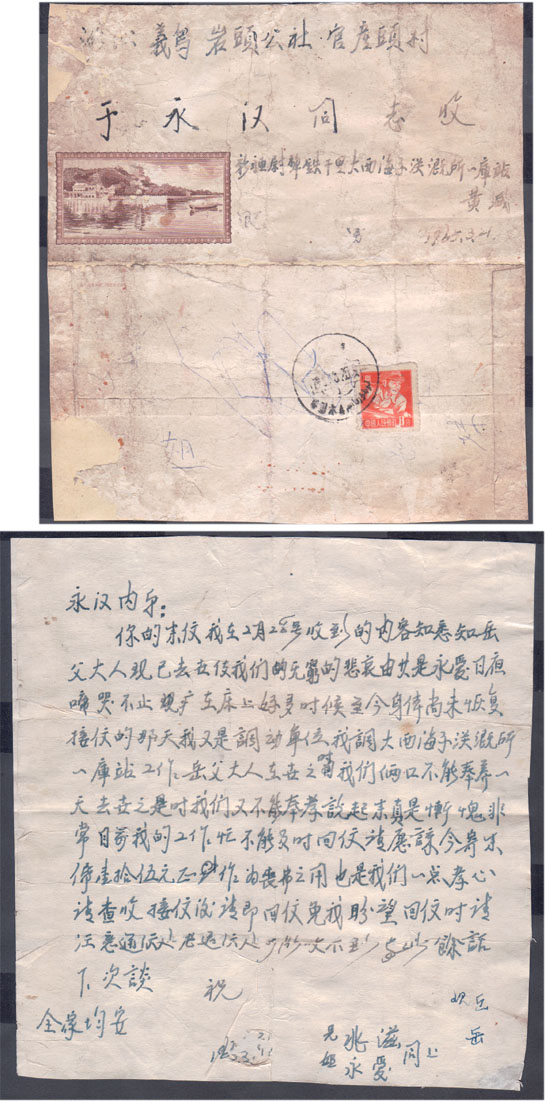 義烏 岩頭公社 官產頭村
于永汉同志收
新疆尉犂鉄干里大西海子洪溉所一庫站
黄
1965.3.1.
姐
永汉内弟:
你的来信我在2月28号收到的内容知悉知岳
父大人现已去世使我们的无窮的悲哀由其是永爱日夜
啼哭不止現产在床上好多时候至今身体尚未恢复
接信的那天我又是調动单位我調大西海子洪溉所
一庫站工作岳父大人在世之时我们俩口不能奉养一
天去世之是时我们又不能奉孝説起来真是慚愧非
常日前我的工作忙不能及时回信请原諒今寄来
壹拾伍元正 作为喪弗之用也是我们一点孝心
请查收接信后请即回信免我盼望回信时请
注意通信处老通信处 不到 餘話
下次談
祝
全家均安
兄 兆滋
姐 永爱
同上